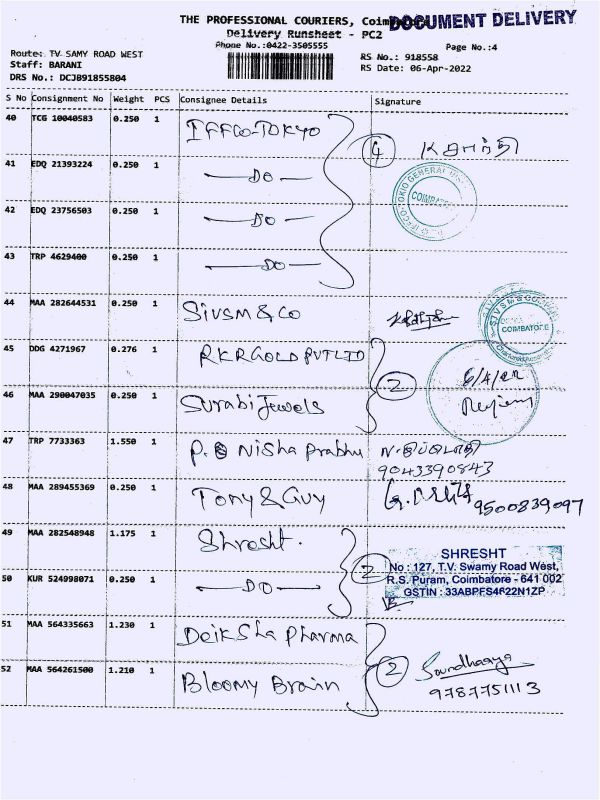 THE PROFESSIONAL COURIERS, Coimbatore
DOCUMENT DELIVERY
Delivery Runsheet - PC2
Phone No.:0422-3505555
Page No.:4
Route: TV SAMY ROAD WEST
RS No.: 918558
Staff: BARANI
RS Date: 06-Apr-2022
DRS No.: DCJB91855804
S No Consignment No Weight PCS Consignee Details Signature
40 TCG 10040583 0.250 1 IFFCO-TOKYO
4
41 EDQ 21393224 0.250 1 —DO—
COIMBATORE
42 EDQ 23756503 0.250 1 —DO—
43 TRP 4629400 0.250 1 —DO—
44 MAA 282644531 0.250 1 SIVSM & CO
SIVSM & CO
COIMBATORE
45 DDG 4271967 0.276 1 RKR GOLD PVT LTD
2
6/4/22
46 MAA 290047035 0.250 1 Surabi Jewels
47 TRP 7733363 1.550 1 P. Nisha Prabhu
9043390843
48 MAA 289455369 0.250 1 Tony & Guy
9500839097
49 MAA 282548948 1.175 1 Shresht.
2
SHRESHT
No : 127, T.V. Swamy Road West,
R.S. Puram, Coimbatore - 641 002
GSTIN : 33ABPFS4622N1ZP
50 KUR 524998071 0.250 1 —DO—
51 MAA 564335663 1.230 1 Deiksha Pharma
2
Soundhaarya
52 MAA 564261500 1.210 1 Bloomy Brain
9787751113